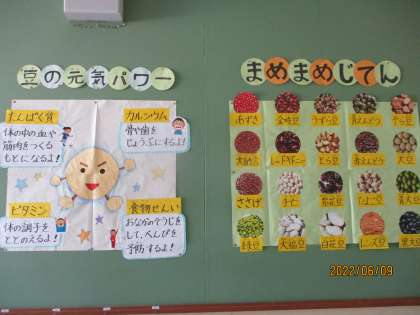 豆の元気パワー
たんぱく質
体の中の血や
筋肉をつくる
もとになるよ!
カルシウム
骨や歯を
じょうぶにするよ!
ビタミン
体の調子を
ととのえるよ!
食物せんい
おなかのそうじを
して、べんぴを
予防するよ!
まめまめじてん
あずき
金時豆
うずら豆
青えんどう
そら豆
大納言
レッドキドニー
とら豆
赤えんどう
大豆
ささげ
紫花豆
ひよこ豆
青大豆
緑豆
大福豆
白花豆
レンズ豆
黒大豆
2022/06/09